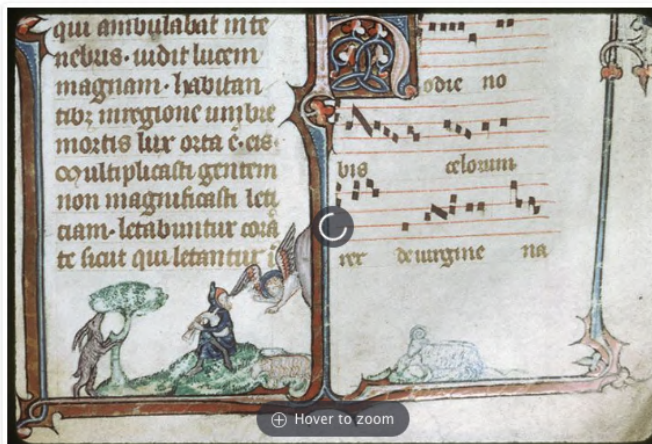 qui ambulabat in te
nebris · uidit lucem
magnam · habitan
tibȝ in regione umbre
mortis lux orta ē · eis
Multiplicasti gentem
non magnificasti leti
ciam · letabuntur corā
te sicut qui letantur ī
Hodie no
bis celorum
rex de uirgine na
Hover to zoom